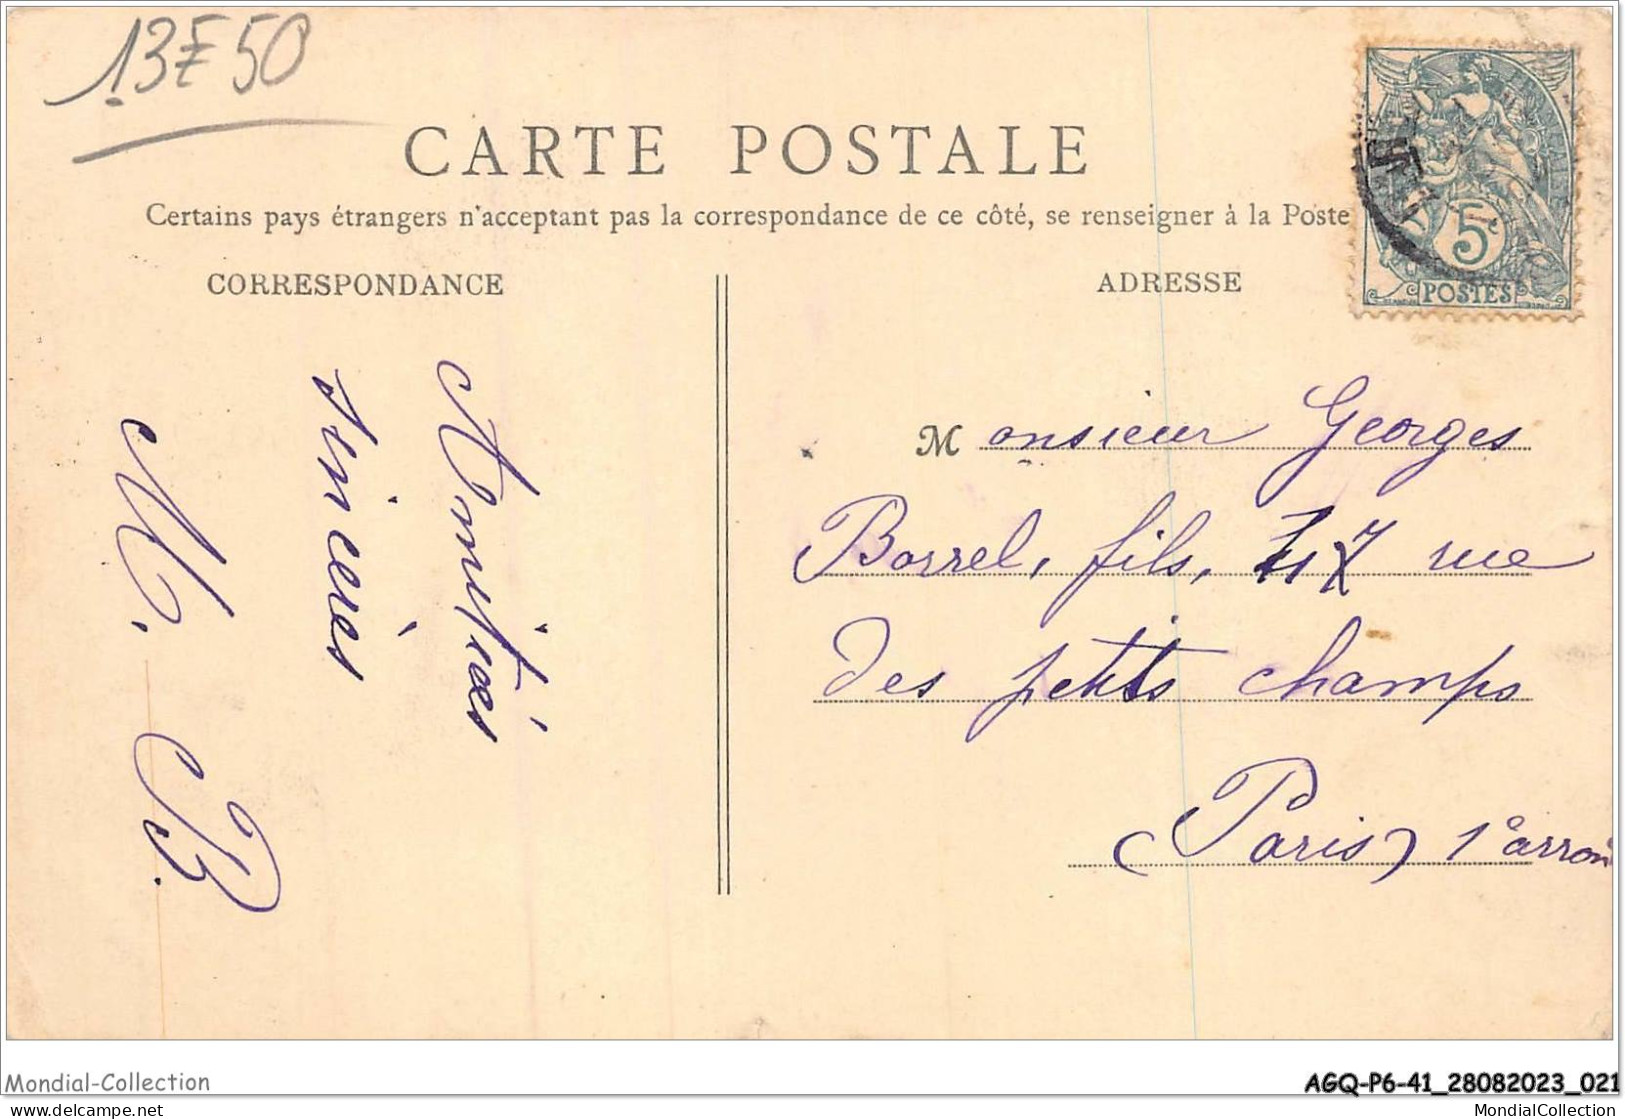 13F50
CARTE POSTALE
Certains pays étrangers n'acceptant pas la correspondance de ce côté, se renseigner à la Poste
CORRESPONDANCE
ADRESSE
5c
POSTES
Amitiés
sincères
M. B.
Monsieur Georges
Borrel, fils, rue
des petits champs
(Paris) 1e arron
Mondial-Collection
AGQ-P6-41_28082023_021
delcampe.net
MondialCollection